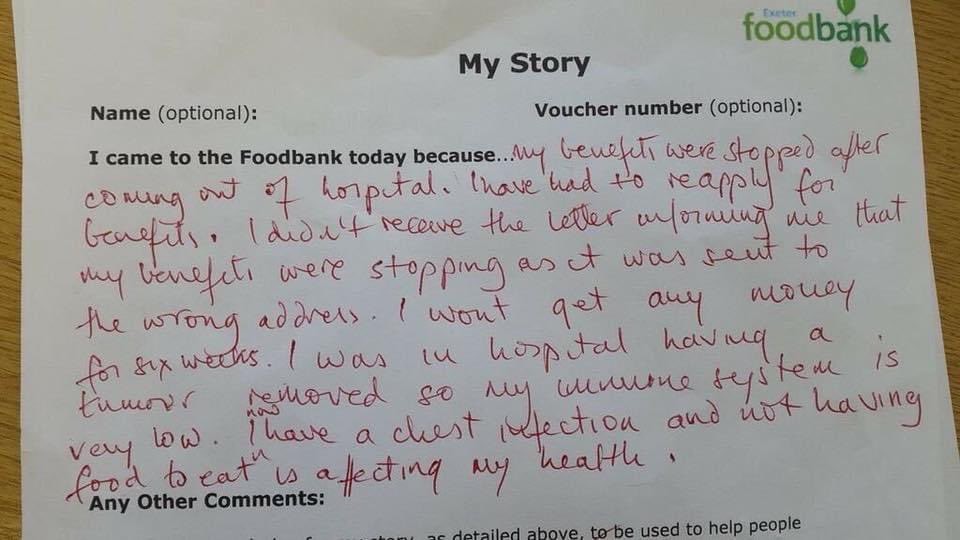 Exeter
foodbank
My Story
Name (optional): Voucher number (optional):
I came to the Foodbank today because... My benefits were stopped after
coming out of hospital. I have had to reapply for
benefits. I didn't receive the letter informing me that
my benefits were stopping as it was sent to
the wrong address. I wont get any money
for six weeks. I was in hospital having a
tumour removed so my immune system is
very low. I now have a chest infection and not having
food to eat is affecting my health.
Any Other Comments:
my story, as detailed above, to be used to help people